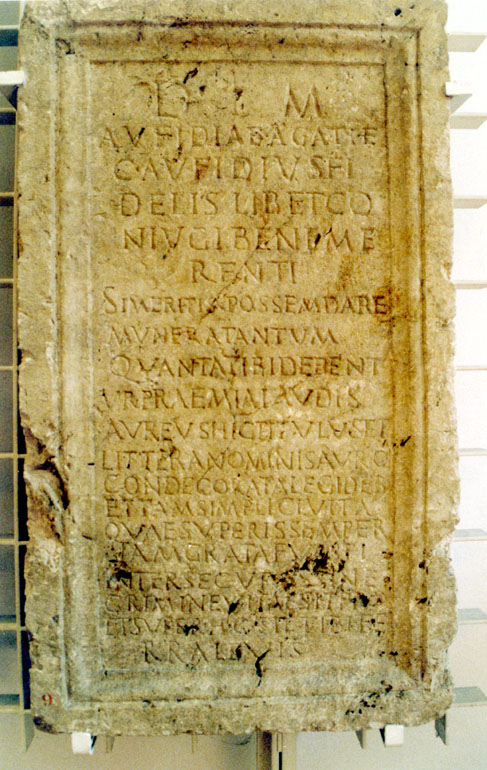 D M
AVFIDIAE AGATHE
C AVFIDIVS FI
DELIS LIB ET CO
NIVGI BENE ME
RENTI
SI MERITIS POSSEM DARE
MVNERA TANTVM
QVANTA TIBI DEBENT
VR PRAEMIA LAVDIS
AVREVS HIC TITVLVS ET
LITTERA NOMINIS AVRO
CONDECORATA LEGI DEB
ET TAM SIMPLICI VITA
QVAE SVPERIS SEMPER
TAM GRATA
INTER SE
CRIMINE VITAE
ET SVPER
RRA LEVIS
9